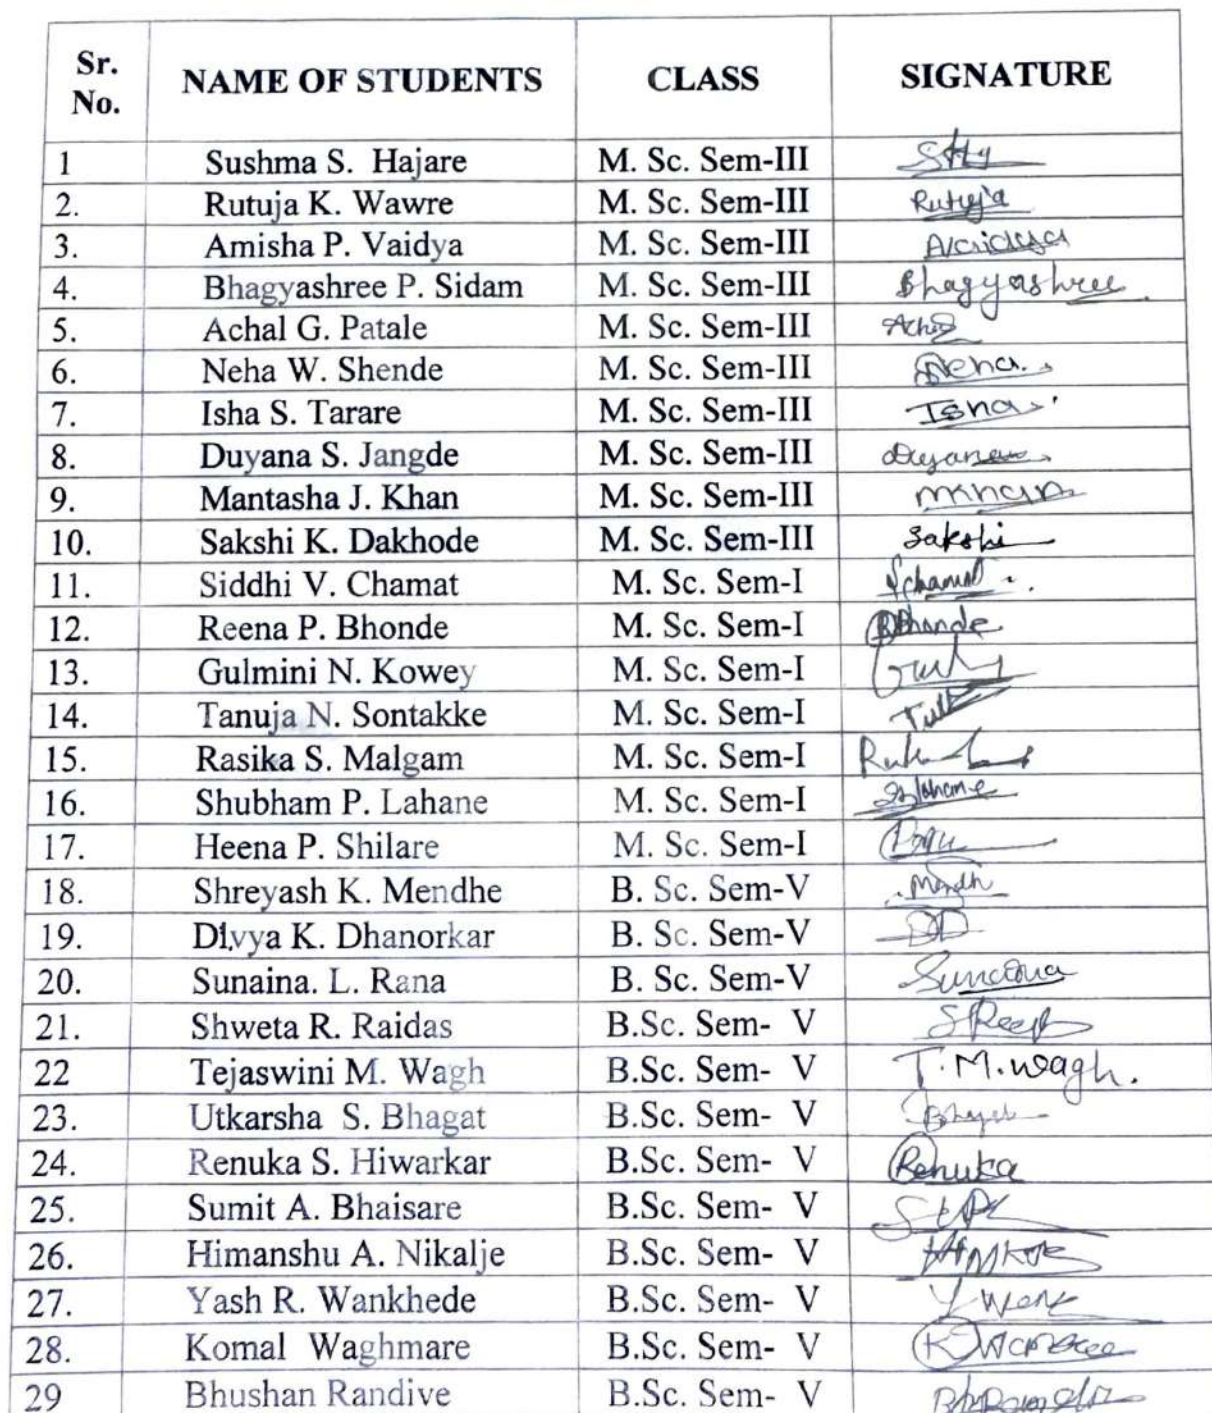 Sr. No. NAME OF STUDENTS CLASS SIGNATURE
1 Sushma S. Hajare M. Sc. Sem-III
2. Rutuja K. Wawre M. Sc. Sem-III Rutuja
3. Amisha P. Vaidya M. Sc. Sem-III AVaidya
4. Bhagyashree P. Sidam M. Sc. Sem-III Bhagyashree
5. Achal G. Patale M. Sc. Sem-III
6. Neha W. Shende M. Sc. Sem-III Neha.
7. Isha S. Tarare M. Sc. Sem-III Isha
8. Duyana S. Jangde M. Sc. Sem-III Duyana
9. Mantasha J. Khan M. Sc. Sem-III MKhan
10. Sakshi K. Dakhode M. Sc. Sem-III Sakshi
11. Siddhi V. Chamat M. Sc. Sem-I
12. Reena P. Bhonde M. Sc. Sem-I RBhonde
13. Gulmini N. Kowey M. Sc. Sem-I
14. Tanuja N. Sontakke M. Sc. Sem-I
15. Rasika S. Malgam M. Sc. Sem-I
16. Shubham P. Lahane M. Sc. Sem-I
17. Heena P. Shilare M. Sc. Sem-I
18. Shreyash K. Mendhe B. Sc. Sem-V
19. Divya K. Dhanorkar B. Sc. Sem-V DD
20. Sunaina. L. Rana B. Sc. Sem-V Sunaina
21. Shweta R. Raidas B.Sc. Sem- V
22 Tejaswini M. Wagh B.Sc. Sem- V T.M.wagh.
23. Utkarsha S. Bhagat B.Sc. Sem- V
24. Renuka S. Hiwarkar B.Sc. Sem- V Renuka
25. Sumit A. Bhaisare B.Sc. Sem- V
26. Himanshu A. Nikalje B.Sc. Sem- V
27. Yash R. Wankhede B.Sc. Sem- V
28. Komal Waghmare B.Sc. Sem- V
29 Bhushan Randive B.Sc. Sem- V